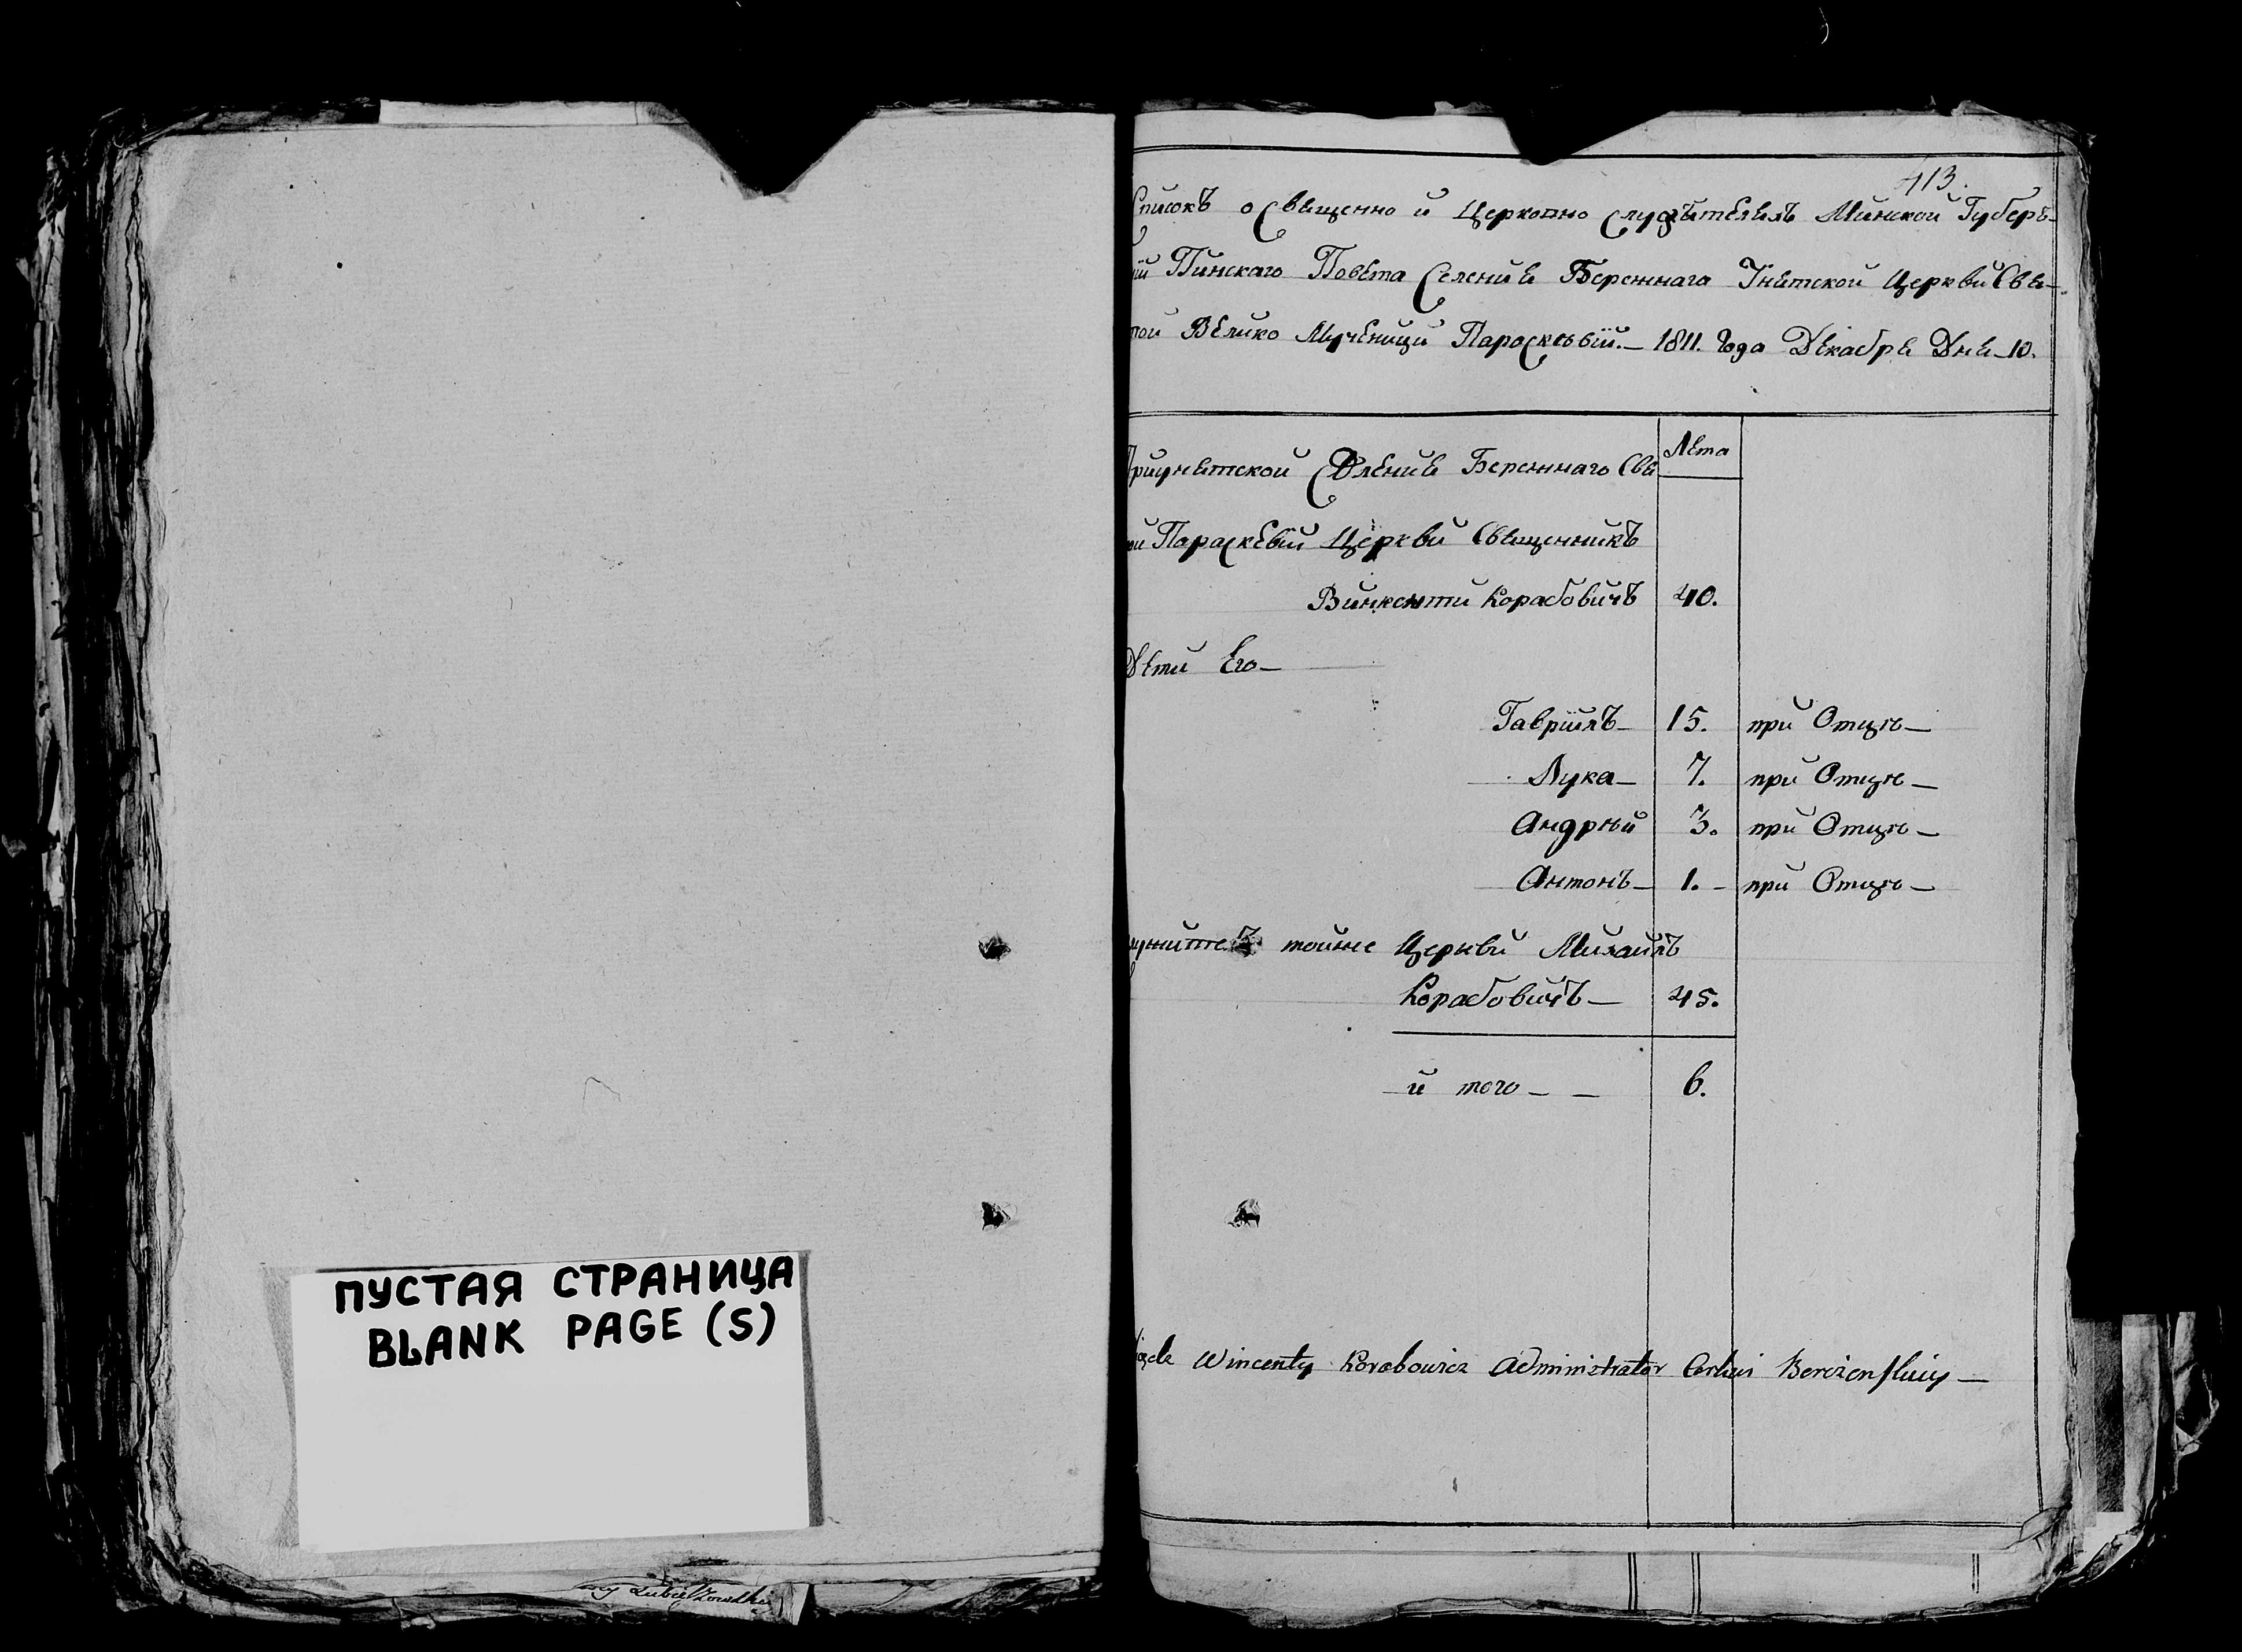 ПУСТАЯ СТРАНИЦА
BLANK PAGE (S)
413.
Списокъ о Священно и Церковно Служителяхъ Минской Губер-
ніи Пинскаго Повѣта Селения Бережнага Унѣтской Церкви Свя-
той Велико Мученици Параскевіи. — 1811. Года Декабря Дня 10.
Лѣта
Приунѣтской Селения Бережнаго Свя
Параскевіи Церкви Священникъ
Винкенти Корабовичъ 40.
Дѣти Его —
Гавріилъ — 15. при Отцѣ —
Лука — 7. при Отцѣ —
Андрѣй 3. при Отцѣ —
Антонъ — 1. — при Отцѣ —
тойже Церкви Михаилъ
Корабовичъ — 45.
и того — — 6.
Wincenty Korabowicz Administrator Cerkwi Bereżenskiey —